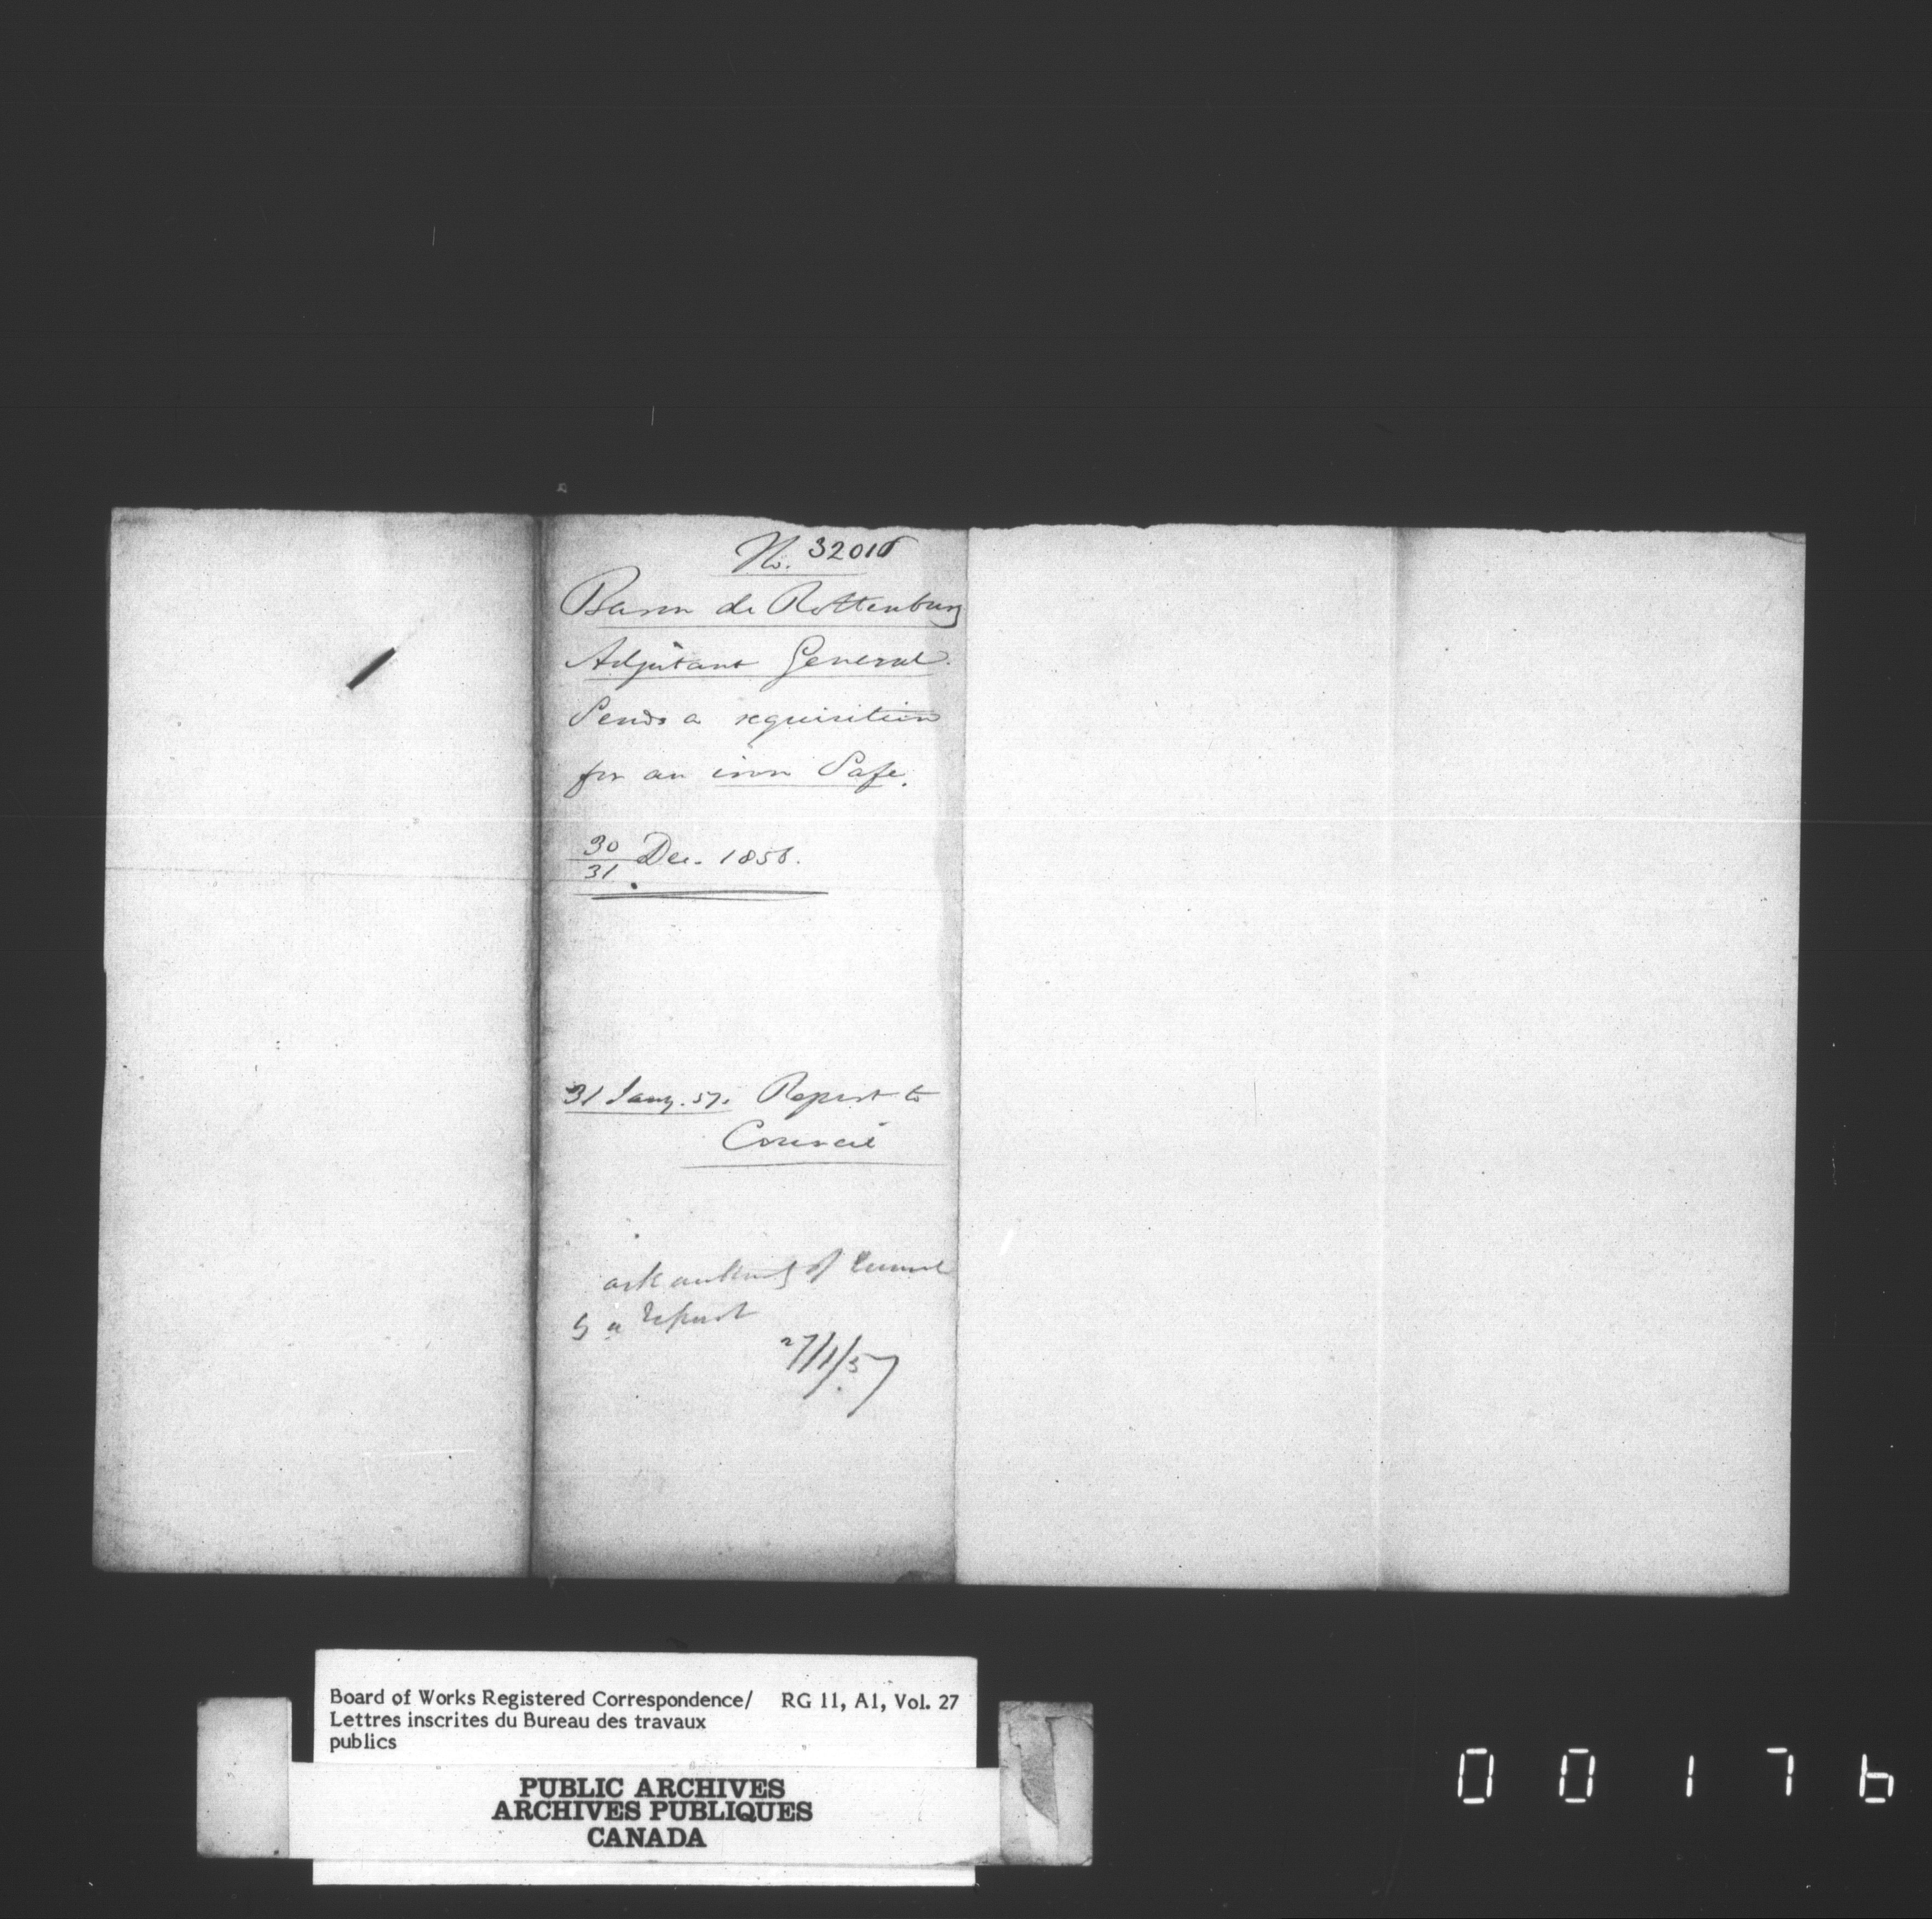 No. 32016
Baron de Rottenburg
Adjutant General.
Sends a requisition
for an iron Safe.
30/31 Dec. 1856.
31 Jany. 57. Report to
Council
ask authority of Council
by a Report
27/1/57
Board of Works Registered Correspondence/ RG 11, A1, Vol. 27
Lettres inscrites du Bureau des travaux
publics
PUBLIC ARCHIVES
ARCHIVES PUBLIQUES
CANADA
00176